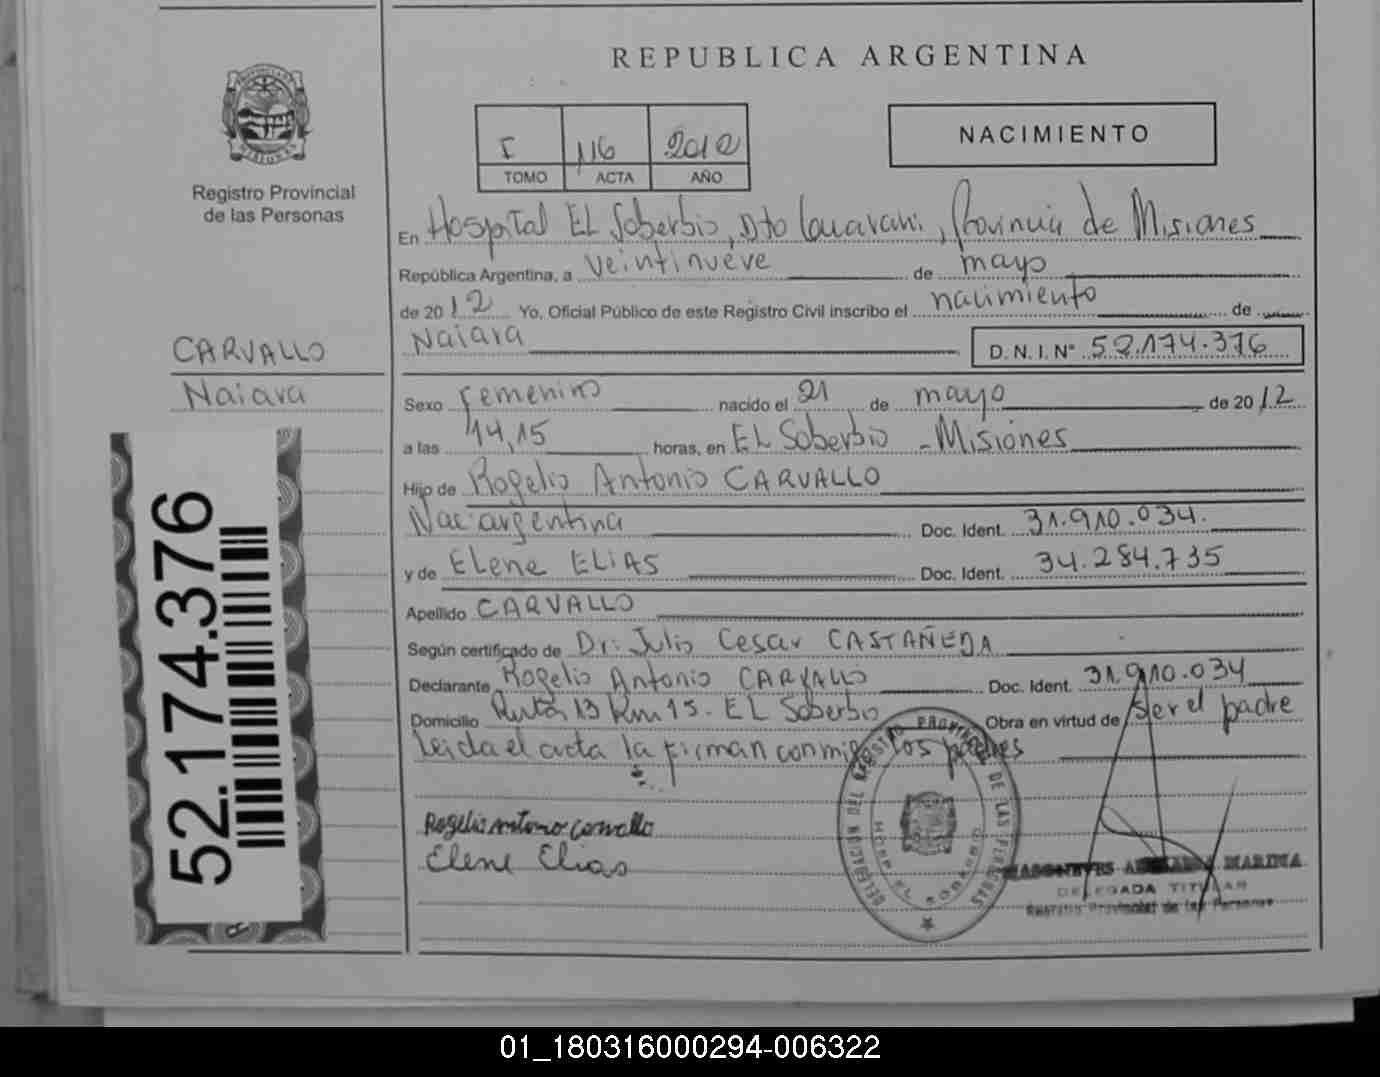 REPUBLICA ARGENTINA
PROVINCIA DE MISIONES
Registro Provincial
de las Personas
I 116 2012
TOMO ACTA AÑO
NACIMIENTO
En Hospital EL Soberbio, Dto Guarani, Provincia de Misiones
República Argentina, a veintinueve de mayo
de 2012 Yo, Oficial Público de este Registro Civil inscribo el nacimiento de
Naiara D. N. I. Nº 52.174.376
CARVALLO
Naiara
Sexo femenino nacido el 21 de mayo de 2012
a las 14,15 horas, en EL Soberbio - Misiones
Hijo de Rogelio Antonio CARVALLO
Nac argentina Doc. Ident. 31.910.034.
y de Elene ELIAS Doc. Ident. 34.284.735
Apellido CARVALLO
Según certificado de Dr: Julio Cesar CASTAÑEDA
Declarante Rogelio Antonio CARVALLO Doc. Ident. 31.910.034
Domicilio Ruta 13 Km 15 - EL Soberbio Obra en virtud de ser el padre
Leida el acta la firman conmigo los padres
Rogelio Antonio Carvallo
Elene Elias
52.174.376
DELEGACION DEL REGISTRO PROVINCIAL DE LAS PERSONAS
EL SOBERBIO
MARINA
DELEGADA TITULAR
Registro Provincial de las Personas
01_180316000294-006322